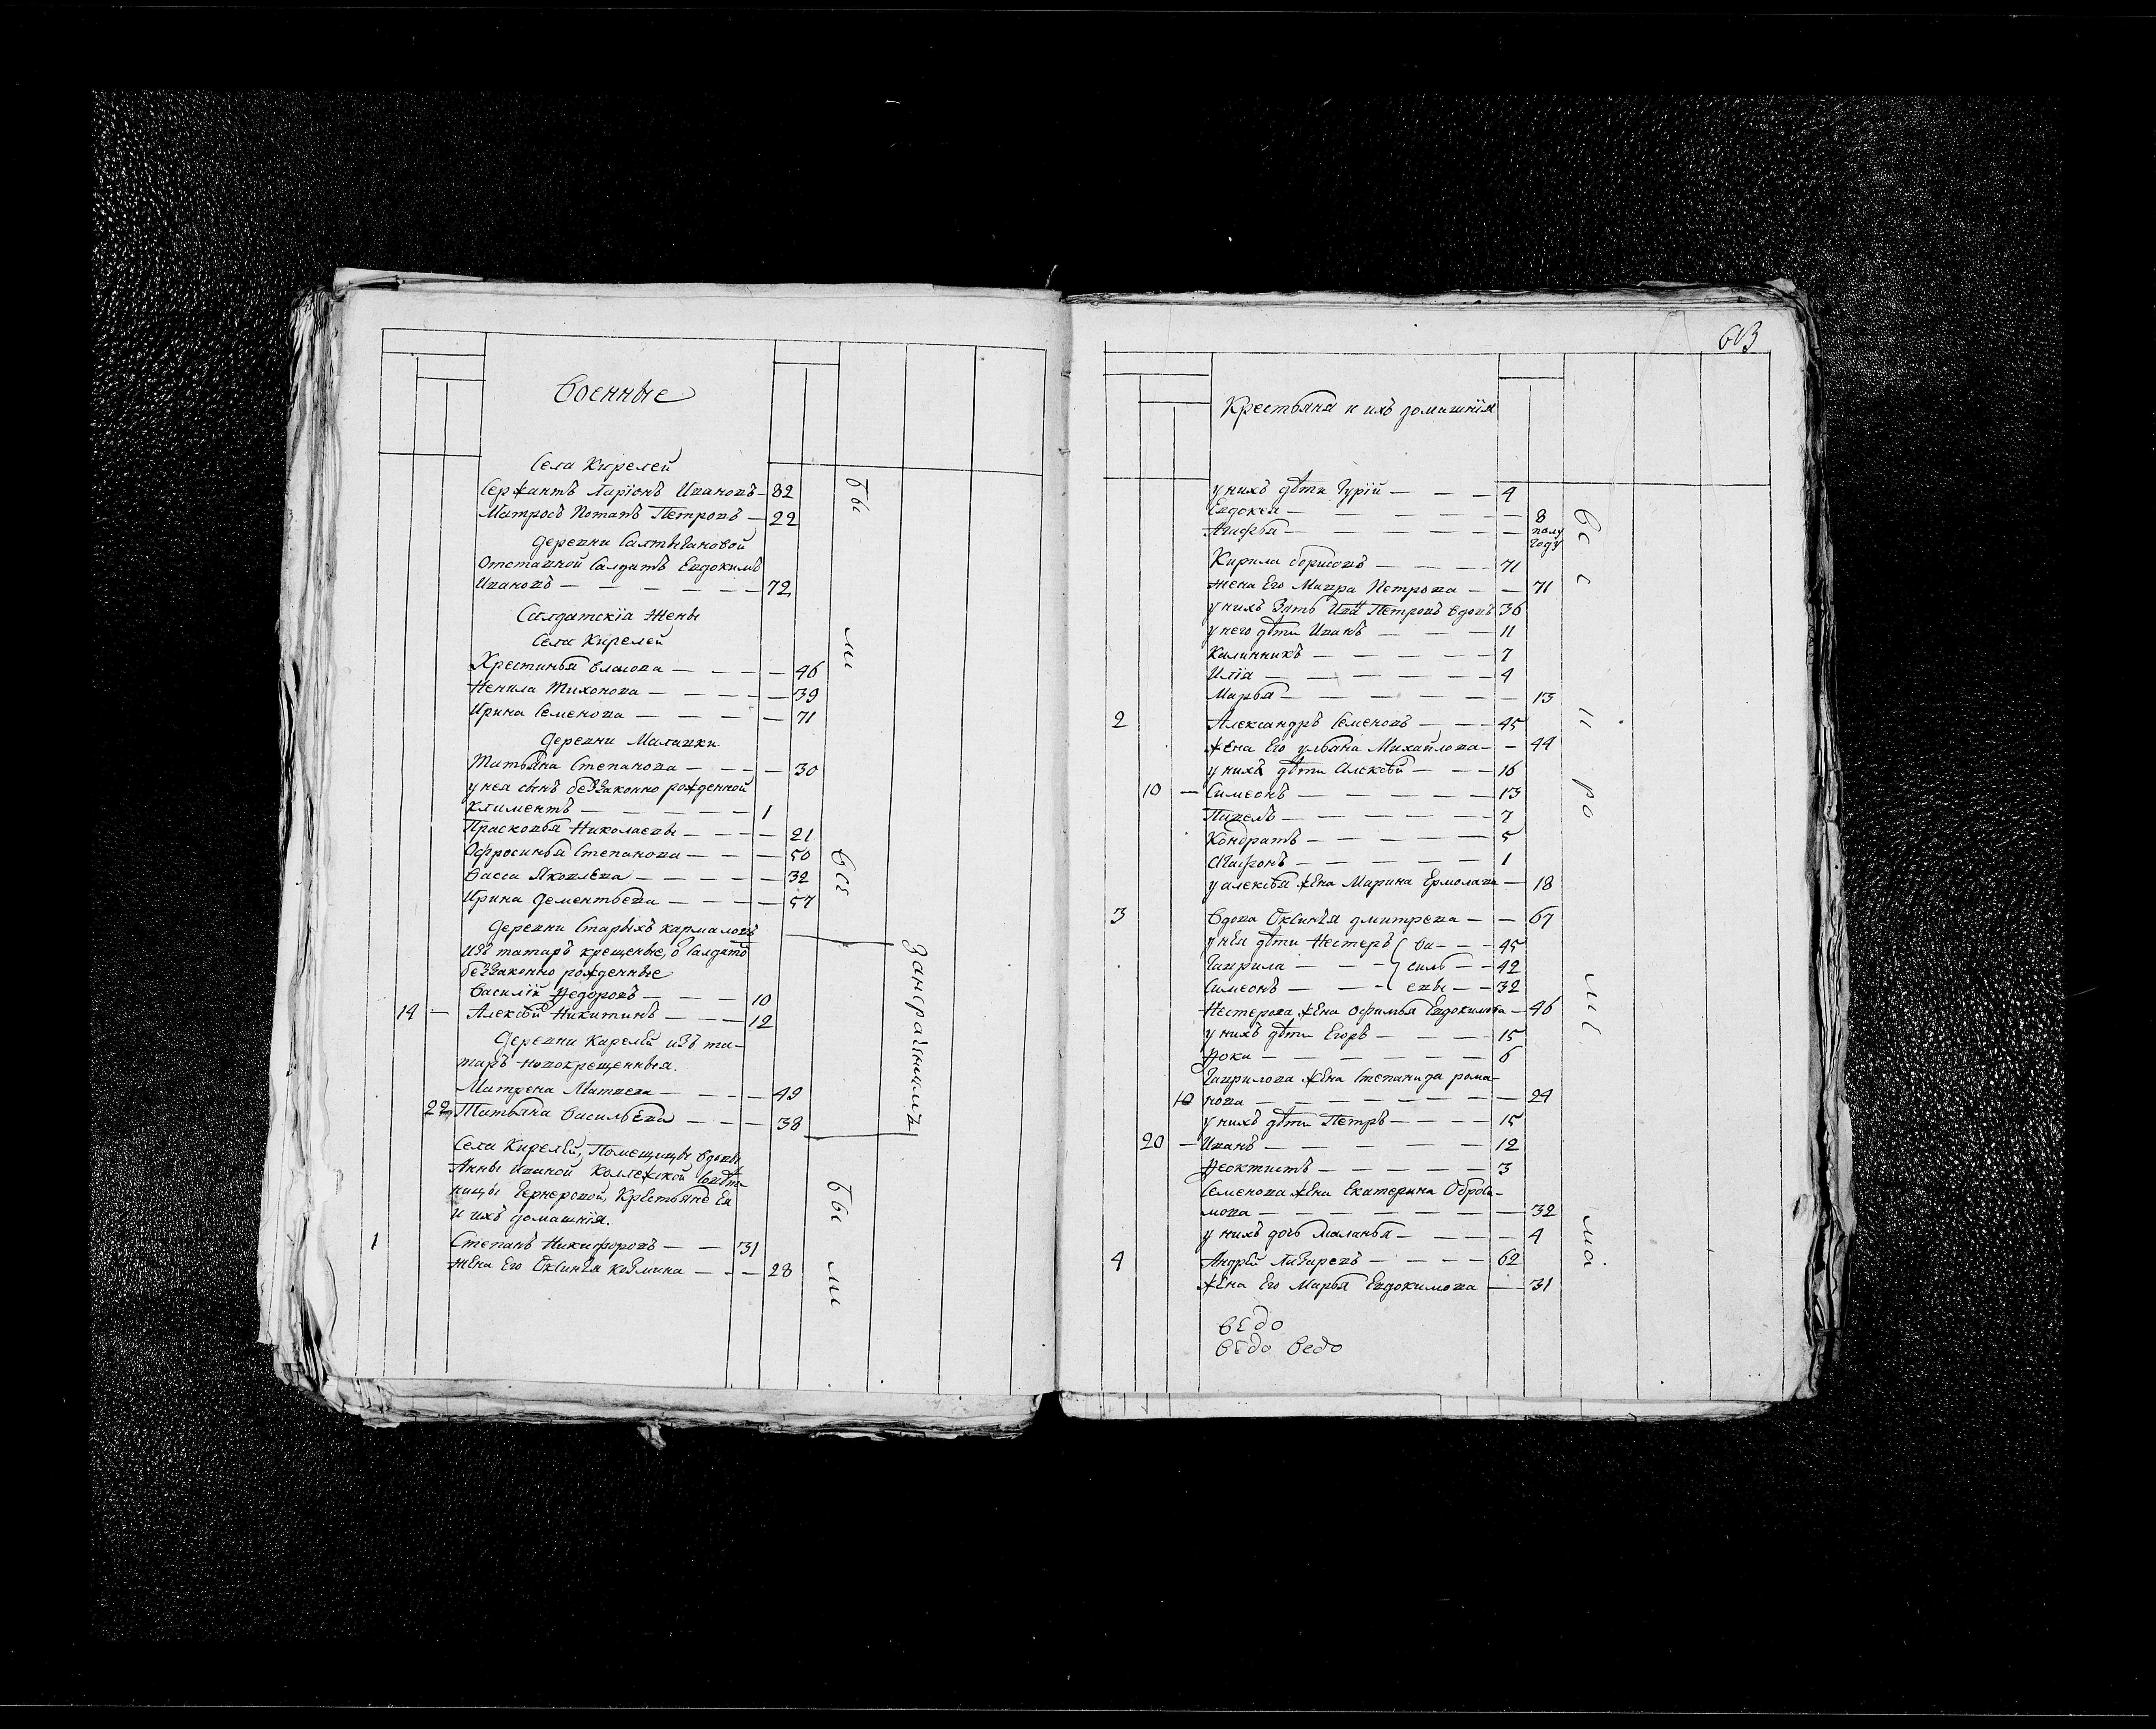 Военные
Села Кирелей
Сержантъ Ларіонъ Ивановъ — 82
Матросъ Потапъ Петровъ — 22
Деревни Салтыгановой
Отставной Салдатъ Евдокимъ
Ивановъ — 72
Салдатскіа Жены
Села Кирелей
Хрестинья Власова — 46
Ненила Тихонова — 39
Ирина Семенова — 71
Деревни Малавки
Татьяна Степанова — 30
у нея сынъ беззаконно рожденной
Климентъ — 1
Прасковья Николаевы — 21
Офросинья Степанова — 50
Васса Яковлева — 32
Ирина Дементьева — 57
Деревни Старыхъ кармаловъ
изъ татаръ крещеные, о Салдатъ
беззаконно рожденные
Василій Ѳедоровъ — 10
14 — Алексѣй Никитинъ — 12
Деревни Кирелѣй изъ та-
таръ новокрещенныя.
Матрена Матвева — 49
22 Татьяна Васильева — 38
Села Кирелѣй, Помещицы вдовы
Анны Ивановой Коллежской Совѣтницы
Крестьяне Ея
и ихъ домашнія.
1 Степанъ Никифоровъ — 31
Жена Его Оксинья козмина — 28
бы ли
бы ли
603
Крестьяня и ихъ домашнія
у нихъ дѣти Гурій — 4
Евдокея — 8
Агафья — полу
году
Кирила борисовъ — 71
Жена Его Мавра Петрова — 71
у нихъ Зять Ива Петровъ вдовъ 36
у него дѣти Иванъ — 11
Калинникъ — 7
Иліа — 4
Марья — 13
2 Александръ Семеновъ — 45
Жена Его ульяна Михайлова — 44
у нихъ дѣти Алексѣй — 16
10 — Симеонъ — 13
Павелъ — 7
Кондратъ — 5
Агафонъ — 1
у алексѣя жена Марина Ермолава — 18
3 Вдова Оксинья дмитрева — 67
у нея дѣти Нестеръ } ва — 45
Гаврила — } силь — 42
Симеонъ — } евы — 32
Нестерова жена Офимья Евдокимова — 46
у нихъ дѣти Егоръ — 15
Ѳока — 6
Гаврилова жена Степанида рома-
10 нова — 24
у нихъ дѣти Петръ — 15
20 — Иванъ — 12
Ѳеоктистъ — 3
Семенова жена Екатерина Оброси-
мова — 32
у нихъ дочь Маланья — 4
4 Андрѣй Лазаревъ — 62
жена Его Марья Евдокимова — 31
ведо
ведо ведо